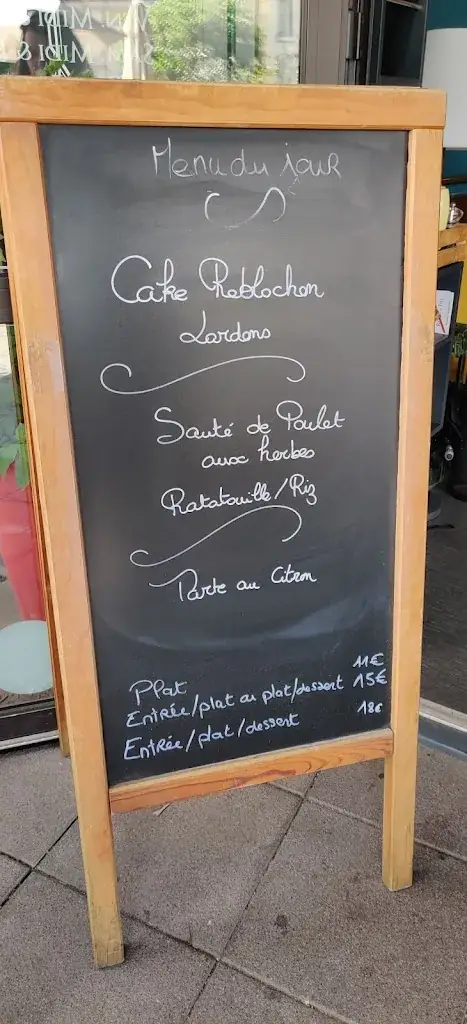 Menu du jour
Cake Reblochon
Lardons
Sauté de Poulet
aux herbes
Ratatouille/Riz
Tarte au Citron
Plat 11€
Entrée/plat ou plat/dessert 15€
Entrée/plat/dessert 18€